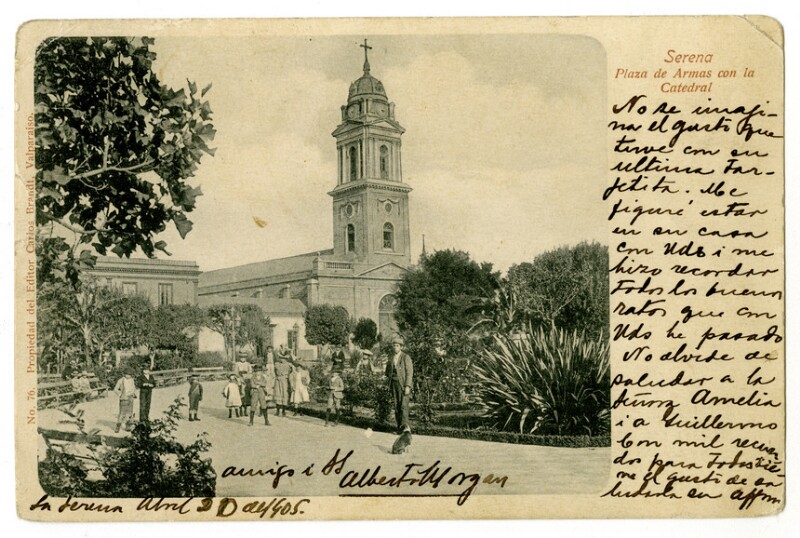 Serena
Plaza de Armas con la
Catedral
No se imagi-
na el gusto que
tuve con su
ultima Tar-
jetita. Me
figuré estar
en su casa
con Uds i me
hizo recordar
todos los buenos
ratos que con
Uds he pasado
No olvide de
saludar a la
Señora Amelia
i a Guillermo
Con mil recuer-
dos para todos tie-
ne el gusto de sa-
ludarla su affmo
amigo i SS
Alberto Morgan
La Serena Abril de 1905.
No. 76. Propiedad del Editor Carlos Brandt, Valparaiso.